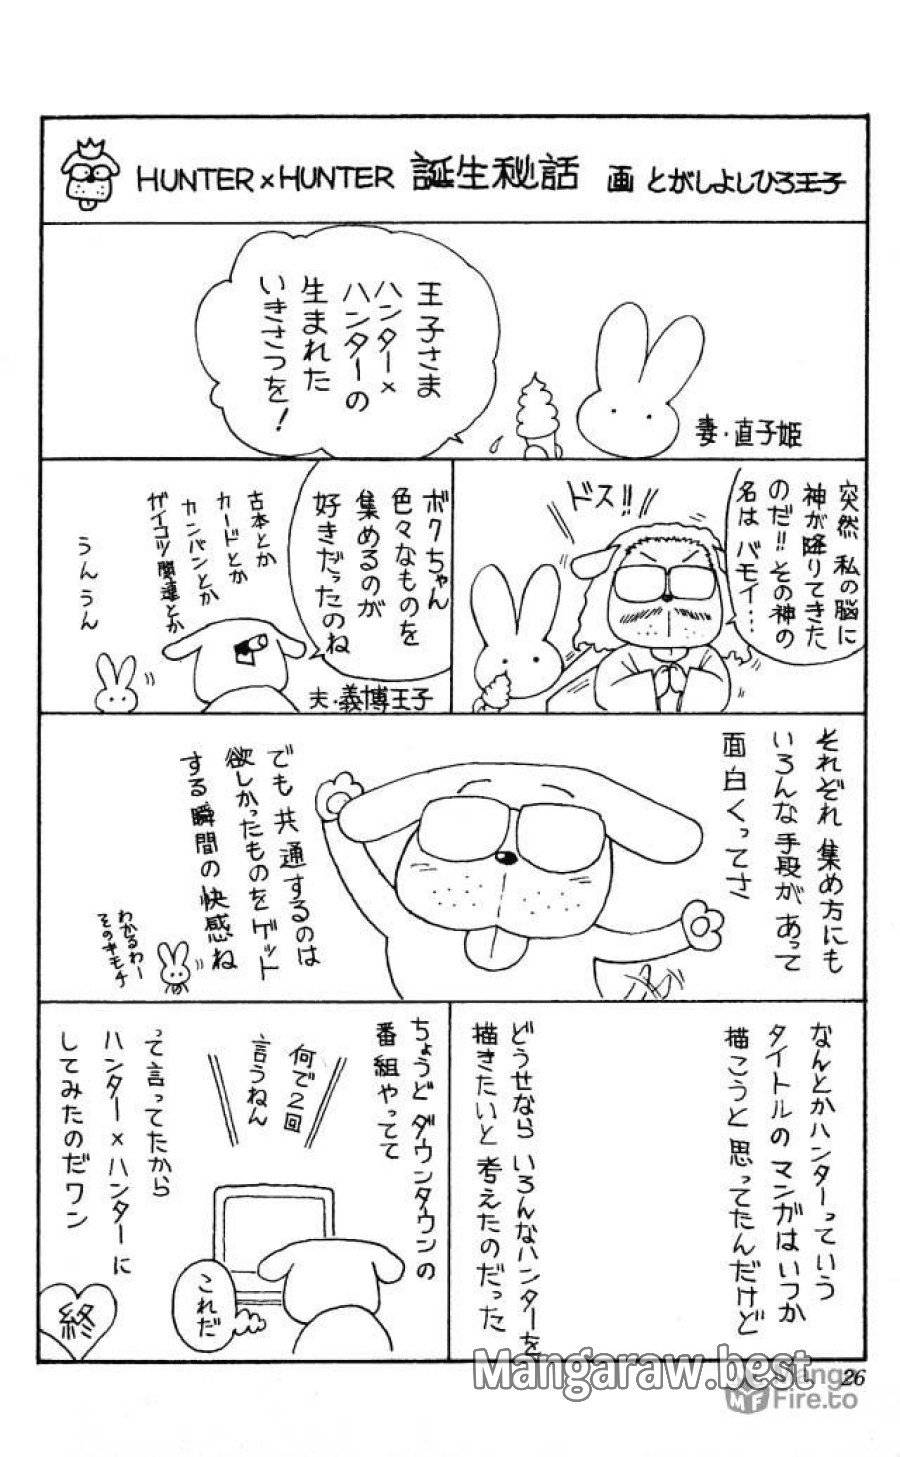 HUNTER×HUNTER 誕生秘話 画 とがしよしひろ王子
王子さま
ハンター×
ハンターの
生まれた
いきさつを!
妻・直子姫
突然 私の脳に
神が降りてきた
のだ!! その神の
名は バモイ…
ドス!!
ボクちゃん
色々なものを
集めるのが
好きだったのね
夫・義博王子
古本とか
カードとか
カンバンとか
ガイコツ関連とか
うんうん
それぞれ 集め方にも
いろんな手段があって
面白くってさ
でも 共通するのは
欲しかったものをゲット
する瞬間の快感ね
わかるわー
そのキモチ
なんとかハンターっていう
タイトルのマンガはいつか
描こうと思ってたんだけど
どうせなら いろんなハンターを
描きたいと考えたのだった
ちょうどダウンタウンの
番組やってて
何で2回
言うねん
これだ
って言ってたから
ハンター×ハンターに
してみたのだワン
終
26
Mangaraw.best
Mang
Fire.to
MF